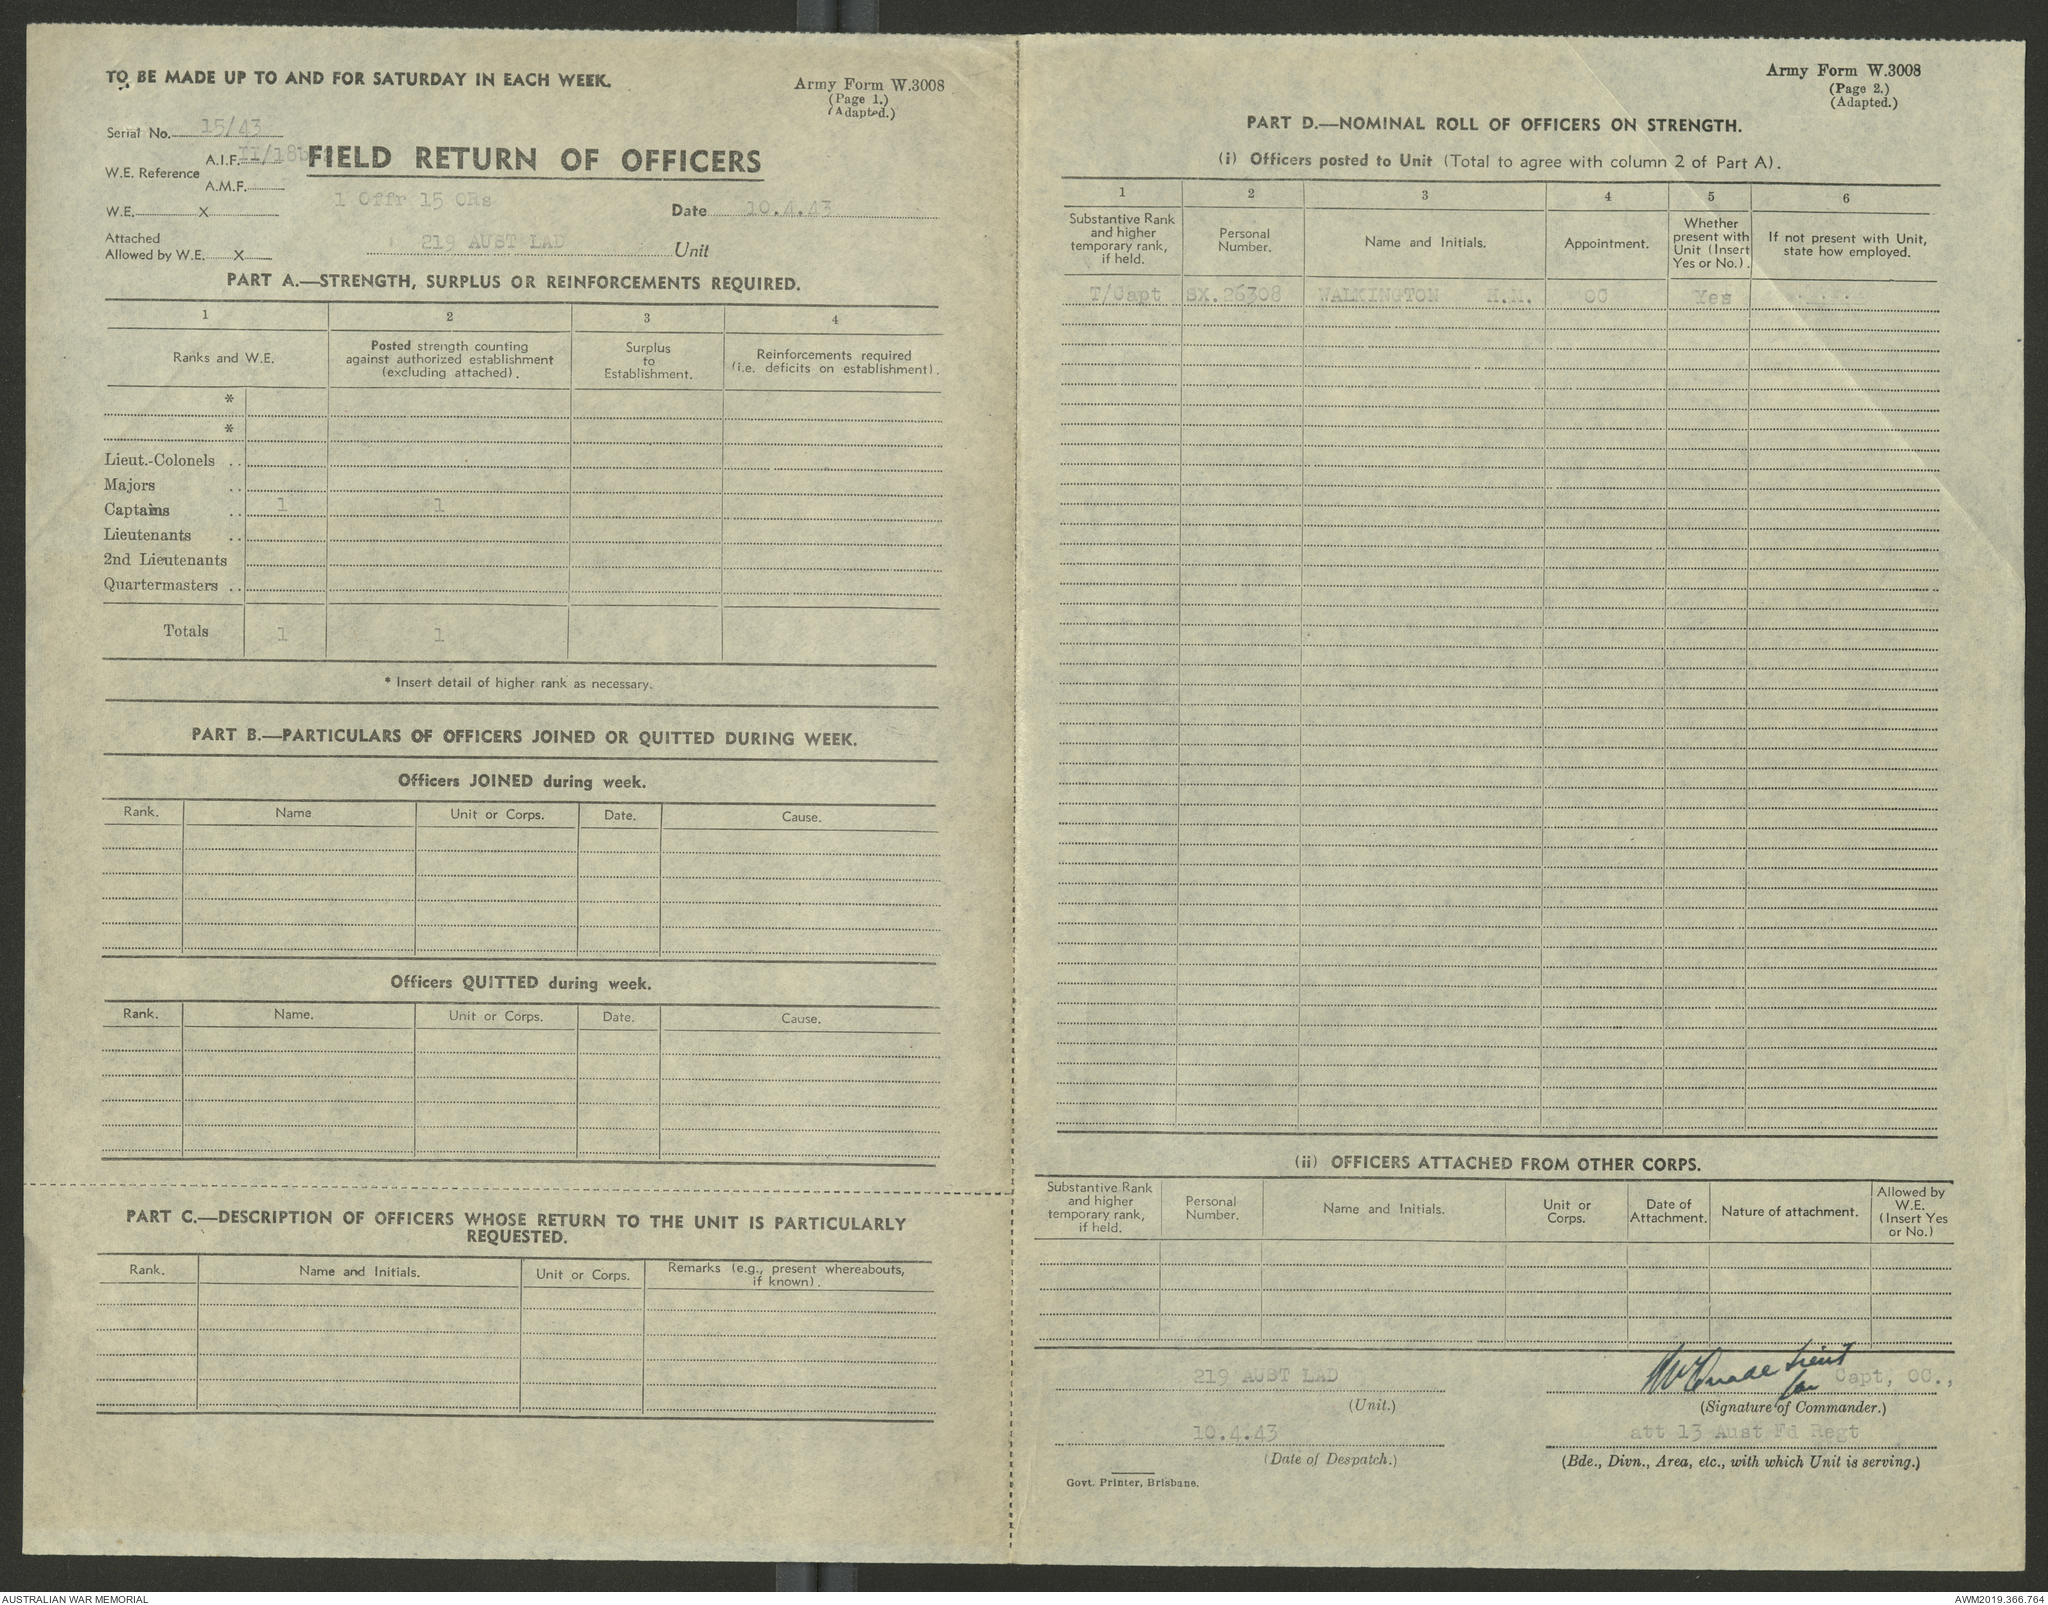 TO BE MADE UP TO AND FOR SATURDAY IN EACH WEEK.
Army Form W.3008
(Page 1.)
(Adapted.)
Serial No. 15/43
W.E. Reference A.I.F. II/18b
A.M.F.
FIELD RETURN OF OFFICERS
1 Offr 15 ORs
W.E. X
Date 10.4.43
Attached
Allowed by W.E. X
219 AUST LAD Unit
PART A.—STRENGTH, SURPLUS OR REINFORCEMENTS REQUIRED.
1 2 3 4
Ranks and W.E.
Posted strength counting
against authorized establishment
(excluding attached).
Surplus
to
Establishment.
Reinforcements required
(i.e. deficits on establishment).
*
*
Lieut.-Colonels ..
Majors ..
Captains .. 1 1
Lieutenants ..
2nd Lieutenants
Quartermasters ..
Totals 1 1
* Insert detail of higher rank as necessary.
PART B.—PARTICULARS OF OFFICERS JOINED OR QUITTED DURING WEEK.
Officers JOINED during week.
Rank. Name Unit or Corps. Date. Cause.
Officers QUITTED during week.
Rank. Name. Unit or Corps. Date. Cause.
PART C.—DESCRIPTION OF OFFICERS WHOSE RETURN TO THE UNIT IS PARTICULARLY
REQUESTED.
Rank. Name and Initials. Unit or Corps. Remarks (e.g., present whereabouts,
if known).
Army Form W.3008
(Page 2.)
(Adapted.)
PART D.—NOMINAL ROLL OF OFFICERS ON STRENGTH.
(i) Officers posted to Unit (Total to agree with column 2 of Part A).
1 2 3 4 5 6
Substantive Rank
and higher
temporary rank,
if held.
Personal
Number.
Name and Initials.
Appointment.
Whether
present with
Unit (Insert
Yes or No.).
If not present with Unit,
state how employed.
T/Capt SX.26308 WALKINGTON H.M. OC Yes
(ii) OFFICERS ATTACHED FROM OTHER CORPS.
Substantive Rank
and higher
temporary rank,
if held.
Personal
Number.
Name and Initials.
Unit or
Corps.
Date of
Attachment.
Nature of attachment.
Allowed by
W.E.
(Insert Yes
or No.)
219 AUST LAD
(Unit.)
Lieut
for Capt, OC.,
(Signature of Commander.)
10.4.43
(Date of Despatch.)
att 13 Aust Fd Regt
(Bde., Divn., Area, etc., with which Unit is serving.)
Govt. Printer, Brisbane.
AUSTRALIAN WAR MEMORIAL
AWM2019.366.764